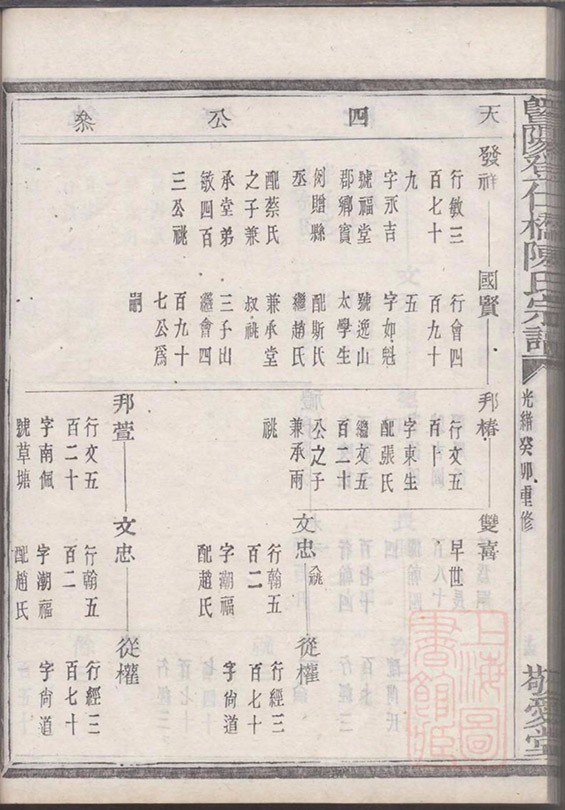 暨陽登仕橋陳氏宗譜
光緒癸卯重修
敬愛堂
天四公系
發祥
行敏三
百七十
九
字永吉
號福堂
郡鄉賓
例贈縣
丞
配蔡氏
之子兼
承堂弟
敏四百
三公祧
國賢
行會四
百九十
五
字如魁
號逸山
太學生
配斯氏
繼趙氏
兼承堂
叔祧
三子出
繼會四
百九十
七公為
嗣
邦椿
行文五
百十
字東生
配張氏
繼文五
百二十
公之子
兼承兩
祧
雙喜
早世
文忠
行翰五
百二
字潮福
配趙氏
從權
行經三
百七十
字尚道
邦萱
行文五
百二十
字南佩
號草塘
文忠
行翰五
百二
字潮福
配趙氏
從權
行經三
百七十
字尚道